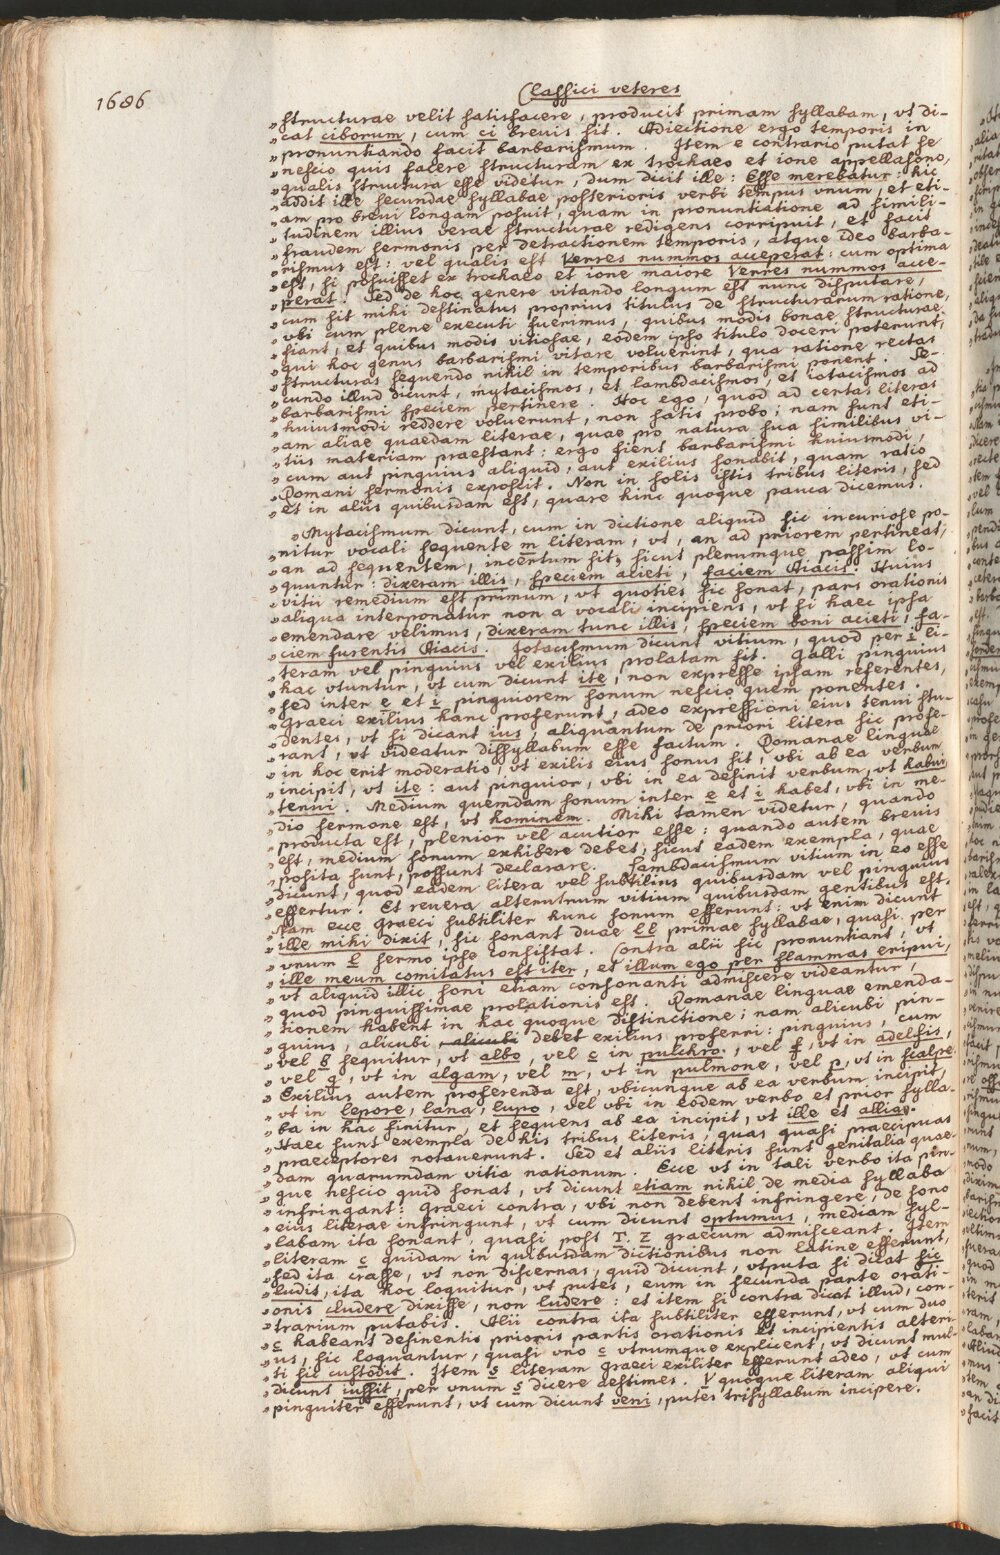 1686
Classici veteres
„structurae velit satisfacere, producit primam syllabam, vt di-
„cat ciborum, cum ci brevis sit. Adiectione ergo temporis in
„pronuntiando facit barbarismum. Item e contrario putat se
„nescio quis facere structuram ex trochaeo et ione appellasono,
„qualis structura esse videtur, dum dicit ille: Esse merebatur: hic
„addit ille secundae syllabae posterioris verbi tempus vnum, et eti-
„am pro brevi longam posuit, quam in pronuntiatione ad simili-
„tudinem illius verae structurae redigens corripuit, et facit
„fraudem sermonis per detractionem temporis, atque ideo barba-
„rismus est: vel qualis est Verres nummos acceperat: cum optima
„est, si posuisset ex trochaeo et ione maiore Verres nummos acce-
„perat. Sed de hoc genere vitando longum est nunc disputare,
„cum sit mihi destinatus proprius titulus de structurarum ratione,
„vbi cum plene executi fuerimus, quibus modis bonae structurae
„fiant, et quibus modis vitiosae, eodem ipso titulo doceri poterunt,
„qui hoc genus barbarismi vitare voluerint, qua ratione rectas
„structuras sequendo nihil in temporibus barbarismi ponent. Se-
„cundo illud dicunt, mytacismos, et lambdacismos, et iotacismos ad
„barbarismi speciem pertinere. Hoc ego, quod ad certas literas
„huiusmodi reddere voluerunt, non satis probo: nam sunt eti-
„am aliae quaedam literae, quae pro natura sua similibus vi-
„tiis materiam praestant: ergo fient barbarismi huiusmodi,
„cum aut pinguius aliquid, aut exilius sonabit, quam ratio
„Romani sermonis exposcit. Non in solis istis tribus literis, sed
„et in aliis quibusdam est, quare hinc quoque pauca dicemus.
„Mytacismum dicunt, cum in dictione aliquid sic incuriose po-
„nitur vocali sequente m literam, vt, an ad priorem pertineat,
„an ad sequentem, incertum sit, sicut plerumque passim lo-
„quuntur: dixeram illis, speciem acieti, faciem Aiacis. Huius
„vitii remedium est primum, vt quoties sic sonat, pars orationis
„aliqua interponatur non a vocali incipiens, vt si haec ipsa
„emendare velimus, dixeram tunc illis, speciem boni acieti, fa-
„ciem furentis Aiacis. Iotacismum dicunt vitium, quod per i li-
„teram vel pinguius vel exilius prolatam fit. Galli pinguius
„hac vtuntur, vt cum dicunt ite, non expresse ipsam referentes,
„sed inter e et i pinguiorem sonum nescio quem ponentes.
„Graeci exilius hanc proferunt, adeo expressioni eius tenui stu-
„dentes, vt si dicant ius, aliquantum de priori litera sic profe-
„rant, vt videatur dissyllabum esse factum. Romanae linguae
„in hoc erit moderatio, vt exilis eius sonus sit, vbi ab ea verbum
„incipit, vt ite: aut pinguior, vbi in ea desinit verbum, vt habui,
„tenui. Medium quemdam sonum inter e et i habet, vbi in me-
„dio sermone est, vt hominem. Mihi tamen videtur, quando
„producta est, plenior vel acutior esse: quando autem brevis
„est, medium sonum exhibere debet, sicut eadem exempla, quae
„posita sunt, possunt declarare. Lambdacismum vitium in eo esse
„dicunt, quod eadem litera vel subtilius quibusdam vel pinguius
„effertur. Et revera alterutrum vitium quibusdam gentibus est.
„Nam ecce Graeci subtiliter hunc sonum efferunt: vt enim dicunt
„ille mihi dixit, sic sonant duae ll primae syllabae, quasi per
„vnum l sermo ipse consistat. Contra alii sic pronuntiant, vt
„ille meum comitatus est iter, et illum ego per flammas eripui,
„vt aliquid illic soni etiam consonanti admiscere videantur,
„quod pinguissimae prolationis est. Romanae linguae emenda-
„tionem habent in hac quoque distinctione; nam alicubi pin-
„guius, alicubi alicubi debet exilius proferri: pinguius, cum
„vel b sequitur, vt albo, vel c in pulchro., vel f, vt in adelfis,
„vel g, vt in algam, vel m, vt in pulmone, vel p, vt in scalpo.
„Exilius autem proferenda est, vbicunque ab ea verbum incipit,
„vt in lepore, lana, lupo, vel vbi in eodem verbo et prior sylla-
„ba in hac finitur, et sequens ab ea incipit, vt ille et allia.
„Haec sunt exempla de his tribus literis, quas quasi praecipuas
„praeceptores notaverunt. Sed et aliis literis sunt genitalia quae-
„dam quarumdam vitia nationum. Ecce vt in tali verbo ita pin-
„gue nescio quid sonat, vt dicunt etiam nihil de media syllaba
„infringant: Graeci contra, vbi non debent infringere, de sono
„eius literae infringunt, vt cum dicunt optumus, mediam syl-
„labam ita sonant, quasi post T. Z graecum admisceant. Item
„literam c quidam in quibusdam dictionibus non latine efferunt,
„sed ita crasse, vt non discernas, quid dicunt, vtputa si dicat sic
„ludis, ita hoc loquitur, vt putes, eum in secunda parte orati-
„onis cludere dixisse, non ludere: et item si contra dicat illud, con-
„trarium putabis. Alii contra ita subtiliter efferunt, vt cum duo
„c habeant desinentis prioris partis orationis et incipientis alteri-
„us, sic loquantur, quasi vno c vtrumque explicent, vt dicunt mul-
„ti sic custodit. Item s literam Graeci exiliter efferunt adeo, vt cum
„dicunt iussit, per vnum s dicere aestimes. V quoque literam aliqui
„pinguiter efferunt, vt cum dicunt veni, putes trisyllabum incipere.